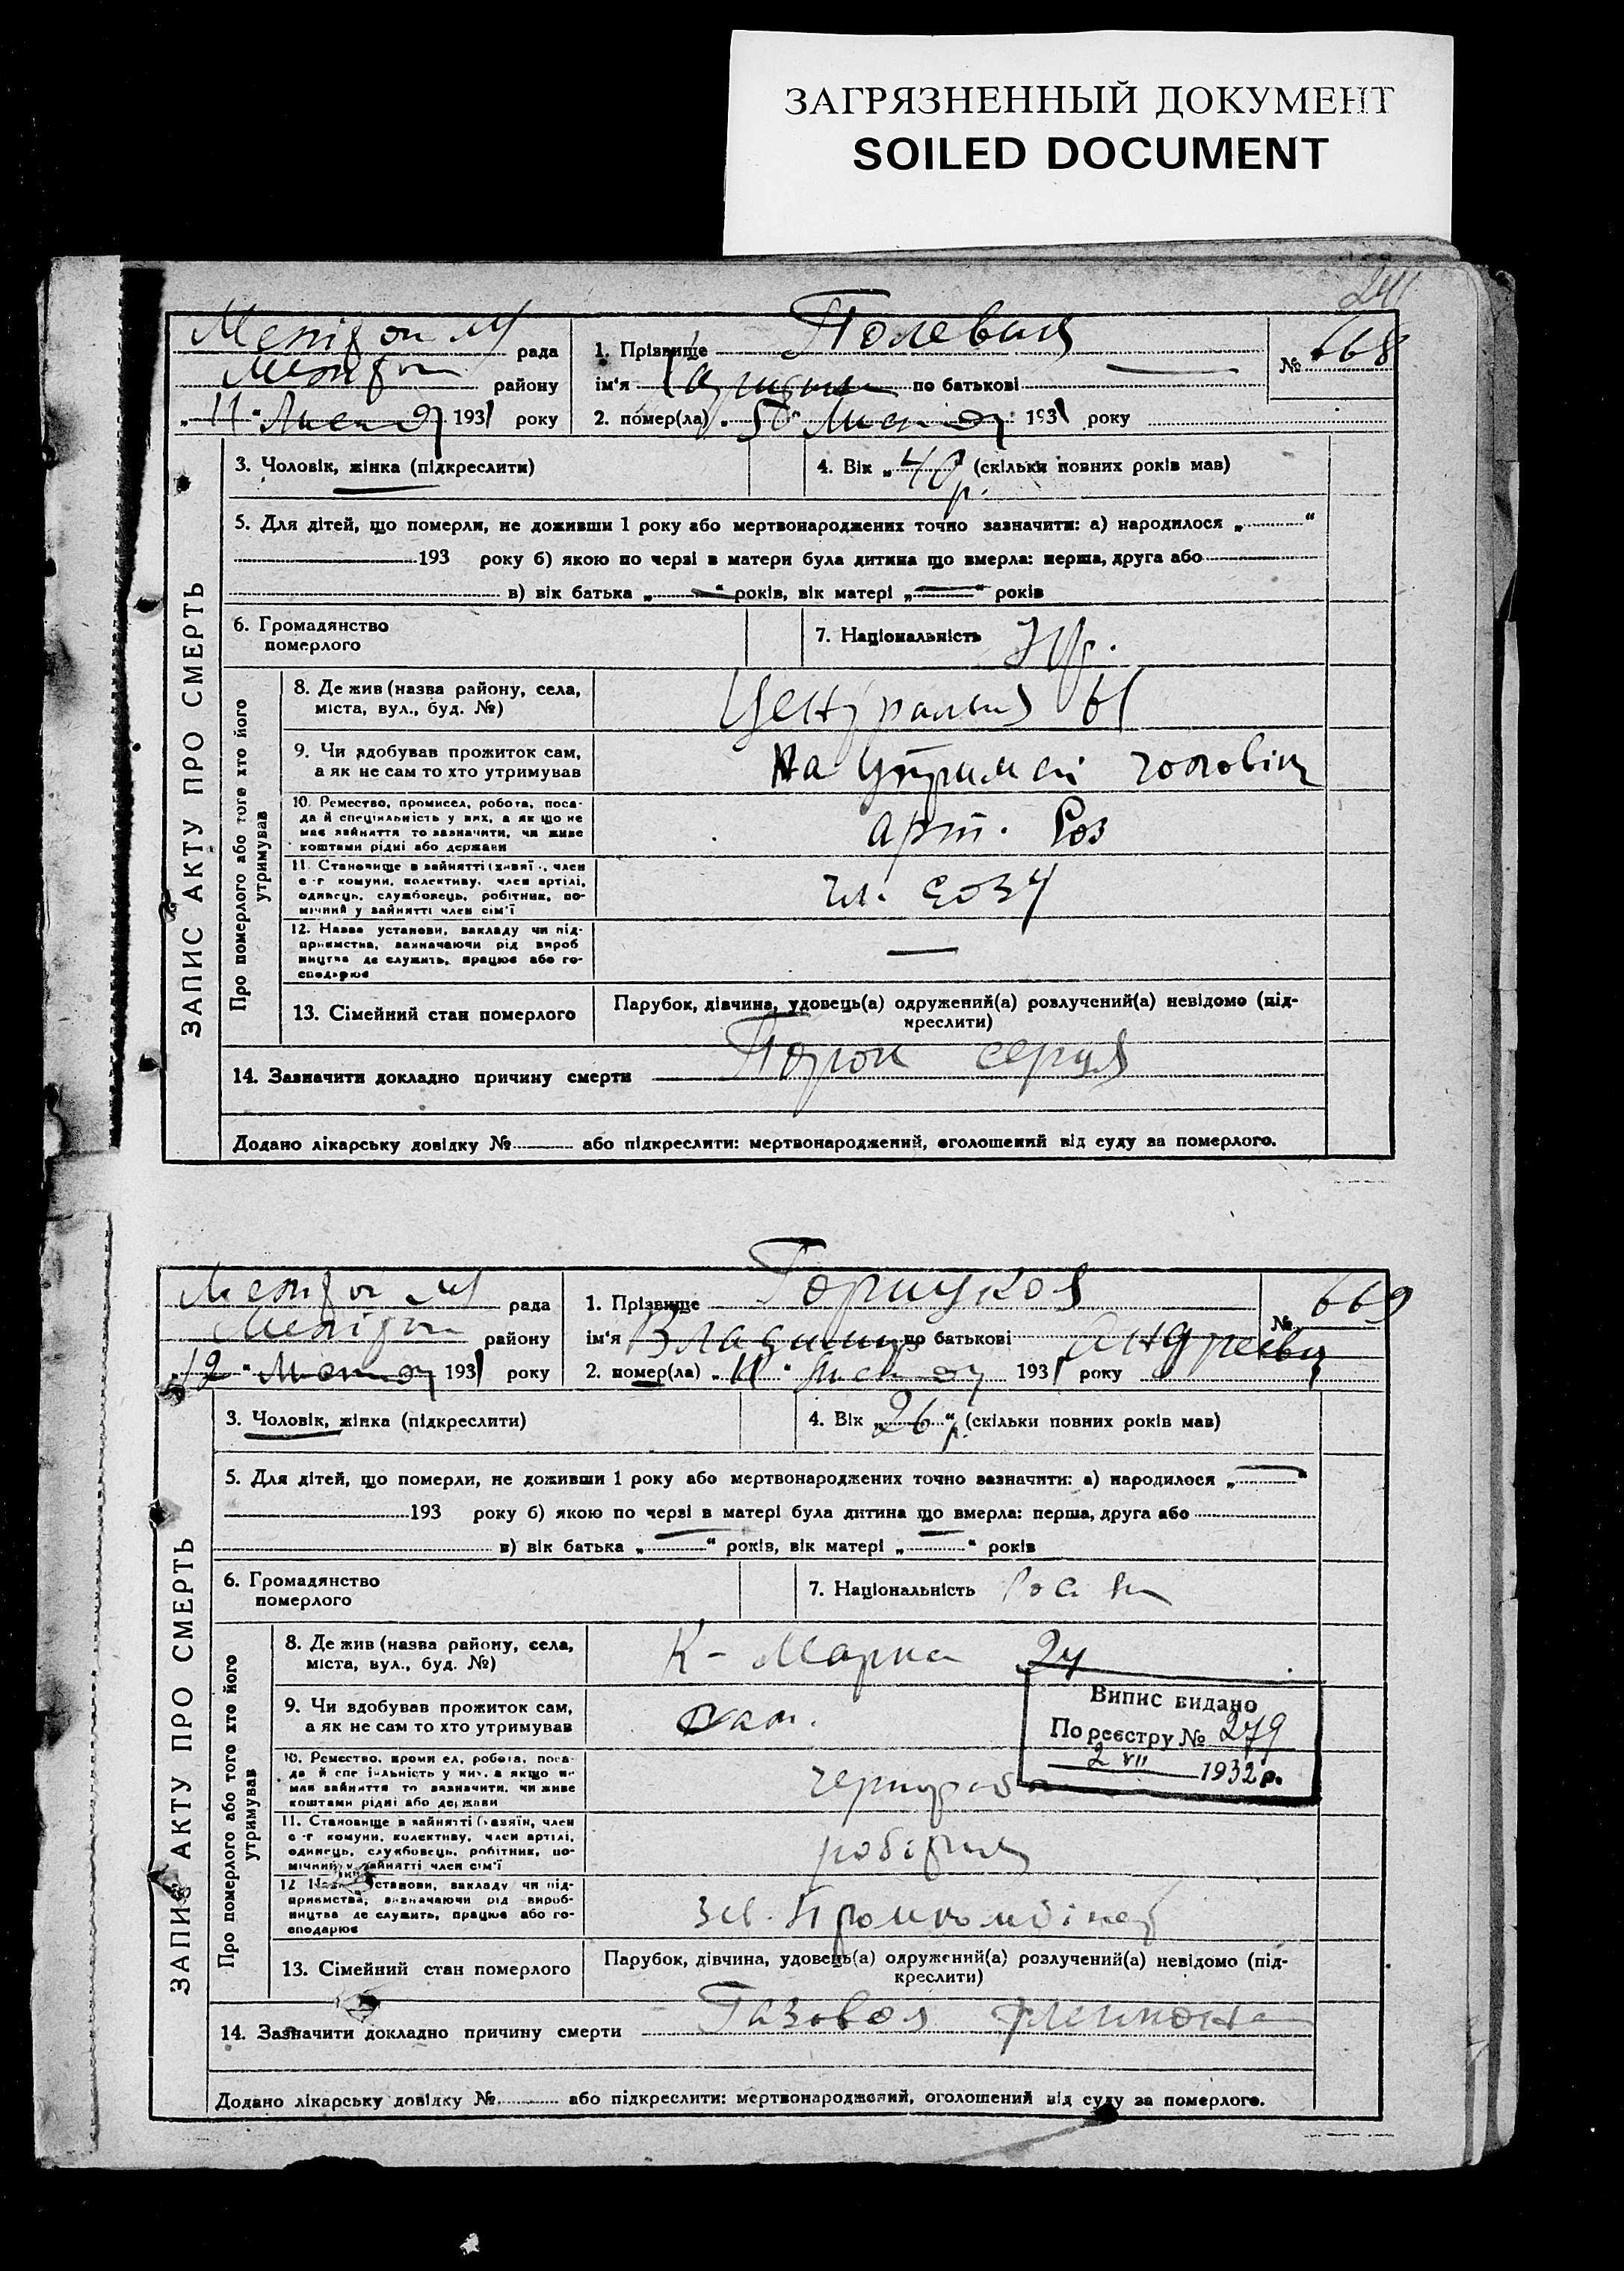 ЗАГРЯЗНЕННЫЙ ДОКУМЕНТ
SOILED DOCUMENT
рада
району
„11“ 1931 року
1. Прізвище Полевая
ім'я по батькові
2. помер(ла) 1931 року
№ 668
ЗАПИС АКТУ ПРО СМЕРТЬ
3. Чоловік, жінка (підкреслити)
4. Вік „40“ р. (скільки повних років мав)
5. Для дітей, що померли, не доживши 1 року або мертвонароджених точно зазначити: а) народилося „ “
193 року б) якою по черзі в матери була дитина що вмерла: перша, друга або
в) вік батька „ “ років, вік матері „ “ років
6. Громадянство
померлого
7. Національність
Про померлого або того хто його
утримував
8. Де жив (назва району, села,
міста, вул., буд. №)
9. Чи здобував прожиток сам,
а як не сам то хто утримував
На
10. Ремество, промисел, робота, поса-
да й спеціяльність у них, а як що не
має зайняття то зазначити, чи живе
коштами рідні або держави
арт.
11. Становище в зайнятті (хазяїн, член
с-г комуни, колективу, член артілі,
одинець, службовець, робітник, по-
мічний у зайнятті член сім'ї
чл.
12. Назва установи, закладу чи під-
приємства, зазначаючи рід вироб
ництва де служить, працює або го-
сподарює
13. Сімейний стан померлого
Парубок, дівчина, удовець(а) одружений(а) розлучений(а) невідомо (під-
креслити)
14. Зазначити докладно причину смерти Порок серця
Додано лікарську довідку № або підкреслити: мертвонароджений, оголошений від суду за померлого.
рада
району
„12“ 1931 року
1. Прізвище
ім'я Владимир по батькові Андреевич
2. помер(ла) „11“ 1931 року
№ 669
ЗАПИС АКТУ ПРО СМЕРТЬ
3. Чоловік, жінка (підкреслити)
4. Вік „26“ р. (скільки повних років мав)
5. Для дітей, що померли, не доживши 1 року або мертвонароджених точно зазначити: а) народилося „ “
193 року б) якою по черзі в матері була дитина що вмерла: перша, друга або
в) вік батька „ “ років, вік матері „ “ років
6. Громадянство
померлого
7. Національність
Про померлого або того хто його
утримував
8. Де жив (назва району, села,
міста, вул., буд. №)
К-Маркса 24
9. Чи здобував прожиток сам,
а як не сам то хто утримував
сам.
Випис видано
По реєстру № 279
2 VII 1932 р.
10. Ремество, промисел, робота, поса-
да й спеціяльність у них, а якщо не
має зайняття то зазначити, чи живе
коштами рідні або держави
11. Становище в зайнятті (хазяїн, член
с-г комуни, колективу, член артілі,
одинець, службовець, робітник, по-
мічний у зайнятті член сім'ї
робітник
12. Назва установи, закладу чи під-
приємства, зазначаючи рід вироб-
ництва де служить, працює або го-
сподарює
Промкомбінат
13. Сімейний стан померлого
Парубок, дівчина, удовець(а) одружений(а) розлучений(а) невідомо (під-
креслити)
14. Зазначити докладно причину смерти Газовая флегмона
Додано лікарську довідку № або підкреслити: мертвонароджений, оголошений від суду за померлого.